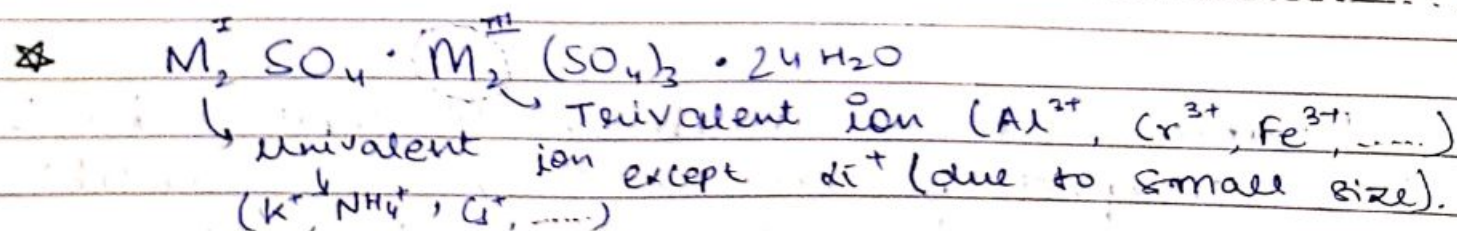 ☆ M₂ᴵ SO₄ · M₂ᴵᴵᴵ (SO₄)₃ · 24 H₂O
↳ Trivalent ion (Al³⁺, Cr³⁺, Fe³⁺, .....)
↳ Univalent ion except Li⁺ (due to small size).
(K⁺, NH₄⁺, Cs⁺, .....)